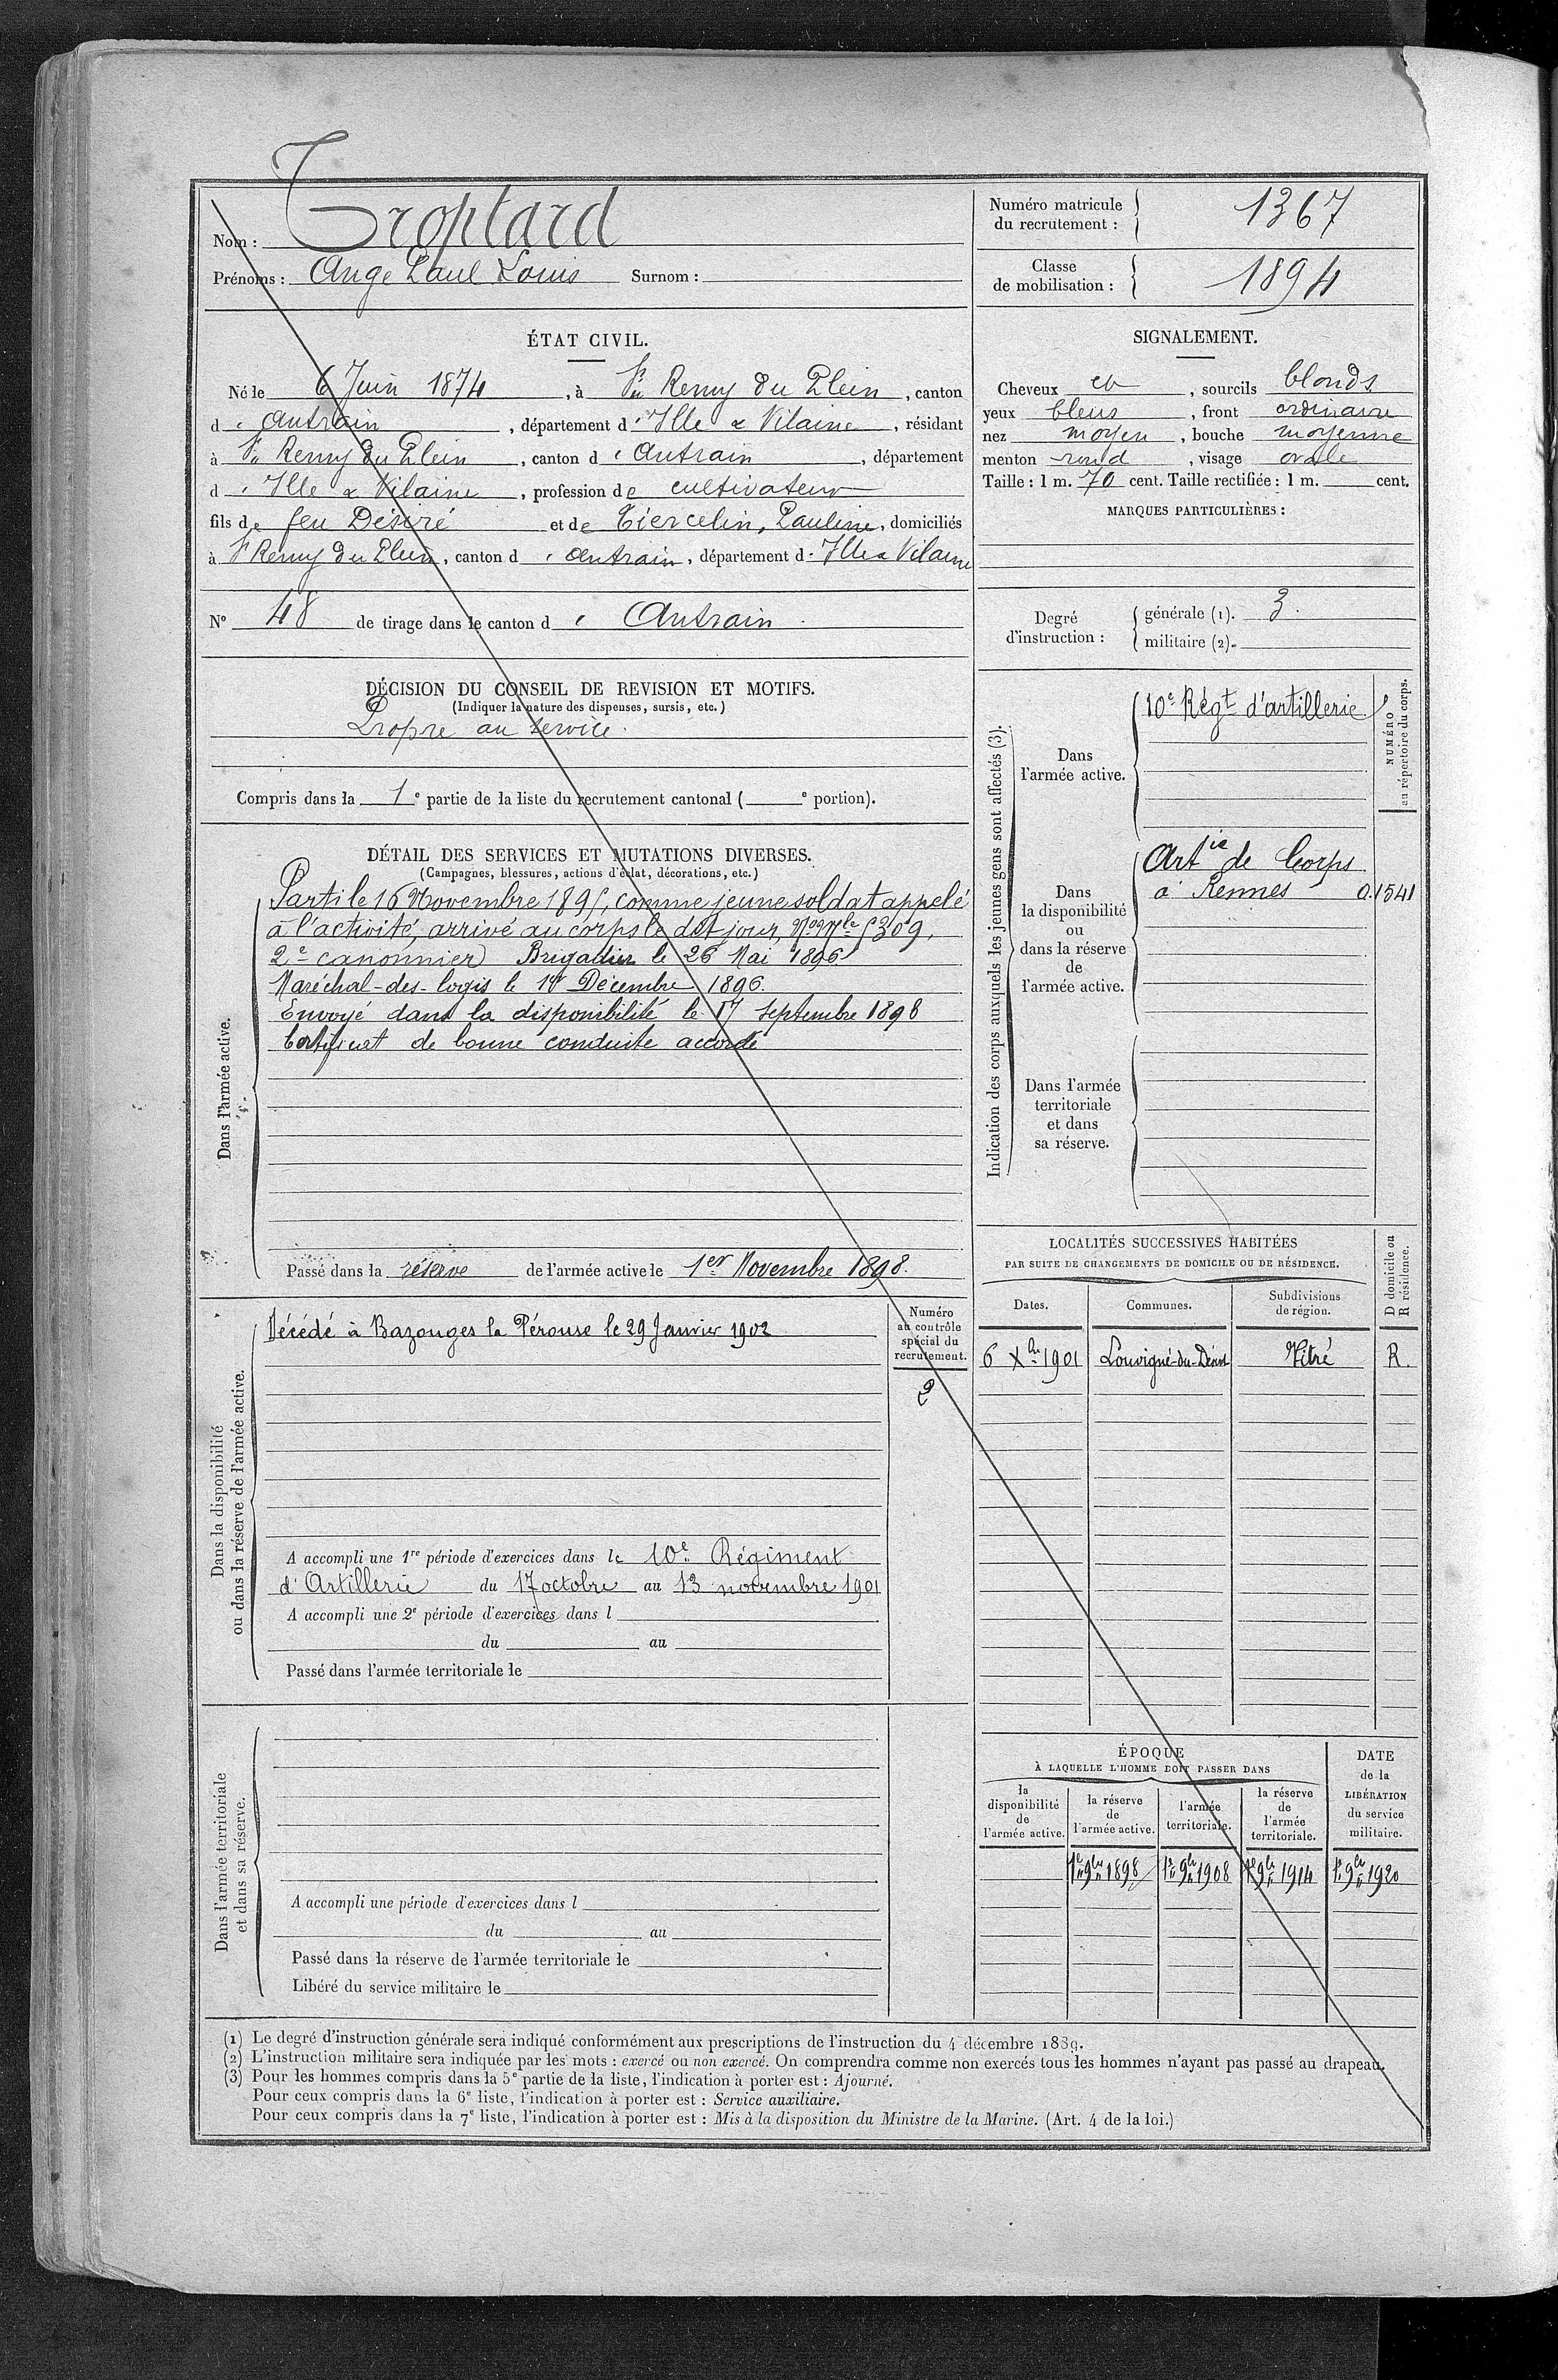 Nom : Troptard
Prénoms : Ange Paul Louis Surnom :
Numéro matricule du recrutement : 1367
Classe de mobilisation : 1894
ÉTAT CIVIL.
Né le 6 Juin 1874, à St Remy du Plein, canton
d' Antrain, département d' Ille & Vilaine, résidant
à St Remy du Plein, canton d' Antrain, département
d' Ille & Vilaine, profession de cultivateur
fils de feu Désiré et de Tiercelin, Pauline, domiciliés
à St Remy du Plein, canton d' Antrain, département d' Ille & Vilaine
N° 48 de tirage dans le canton d' Antrain
SIGNALEMENT.
Cheveux et, sourcils blonds
yeux bleus, front ordinaire
nez moyen, bouche moyenne
menton rond, visage ovale
Taille : 1 m. 70 cent. Taille rectifiée : 1 m. cent.
MARQUES PARTICULIÈRES :
Degré d'instruction : générale (1). 3.
militaire (2).
DÉCISION DU CONSEIL DE REVISION ET MOTIFS.
(Indiquer la nature des dispenses, sursis, etc.)
Propre au service.
Compris dans la 1e partie de la liste du recrutement cantonal ( e portion).
DÉTAIL DES SERVICES ET MUTATIONS DIVERSES.
(Campagnes, blessures, actions d'éclat, décorations, etc.)
Dans l'armée active.
Parti le 16 Novembre 1895, comme jeune soldat appelé
à l'activité, arrivé au corps le dit jour, No Mle 5309,
2e canonnier Brigadier le 26 Mai 1896
Maréchal-des-logis le 1er Décembre 1896.
Envoyé dans la disponibilité le 17 Septembre 1898
Certificat de bonne conduite accordé
Passé dans la réserve de l'armée active le 1er Novembre 1898.
Indication des corps auxquels les jeunes gens sont affectés (3).
NUMÉRO au répertoire du corps.
Dans l'armée active.
10e Régt d'artillerie
Dans la disponibilité ou dans la réserve de l'armée active.
Artie de Corps
à Rennes 0.1541
Dans l'armée territoriale et dans sa réserve.
LOCALITÉS SUCCESSIVES HABITÉES
PAR SUITE DE CHANGEMENTS DE DOMICILE OU DE RÉSIDENCE.
D domicile ou R résidence.
Dates. Communes. Subdivisions de région.
6 Xbre 1901 Louvigné-du-Désert Vitré R.
Dans la disponibilité ou dans la réserve de l'armée active.
Numéro au contrôle spécial du recrutement.
2
Décédé à Bazouges la Pérouse le 29 Janvier 1902
A accompli une 1re période d'exercices dans le 10e Régiment
d'Artillerie du 17 octobre au 13 novembre 1901
A accompli une 2e période d'exercices dans l
du au
Passé dans l'armée territoriale le
Dans l'armée territoriale et dans sa réserve.
A accompli une période d'exercices dans l
du au
Passé dans la réserve de l'armée territoriale le
Libéré du service militaire le
ÉPOQUE
À LAQUELLE L'HOMME DOIT PASSER DANS
la disponibilité de l'armée active. la réserve de l'armée active. l'armée territoriale. la réserve de l'armée territoriale.
DATE de la LIBÉRATION du service militaire.
1er 9bre 1898 1er 9bre 1908 1er 9bre 1914 1er 9bre 1920
(1) Le degré d'instruction générale sera indiqué conformément aux prescriptions de l'instruction du 4 décembre 1889.
(2) L'instruction militaire sera indiquée par les mots : exercé ou non exercé. On comprendra comme non exercés tous les hommes n'ayant pas passé au drapeau.
(3) Pour les hommes compris dans la 5e partie de la liste, l'indication à porter est : Ajourné.
Pour ceux compris dans la 6e liste, l'indication à porter est : Service auxiliaire.
Pour ceux compris dans la 7e liste, l'indication à porter est : Mis à la disposition du Ministre de la Marine. (Art. 4 de la loi.)